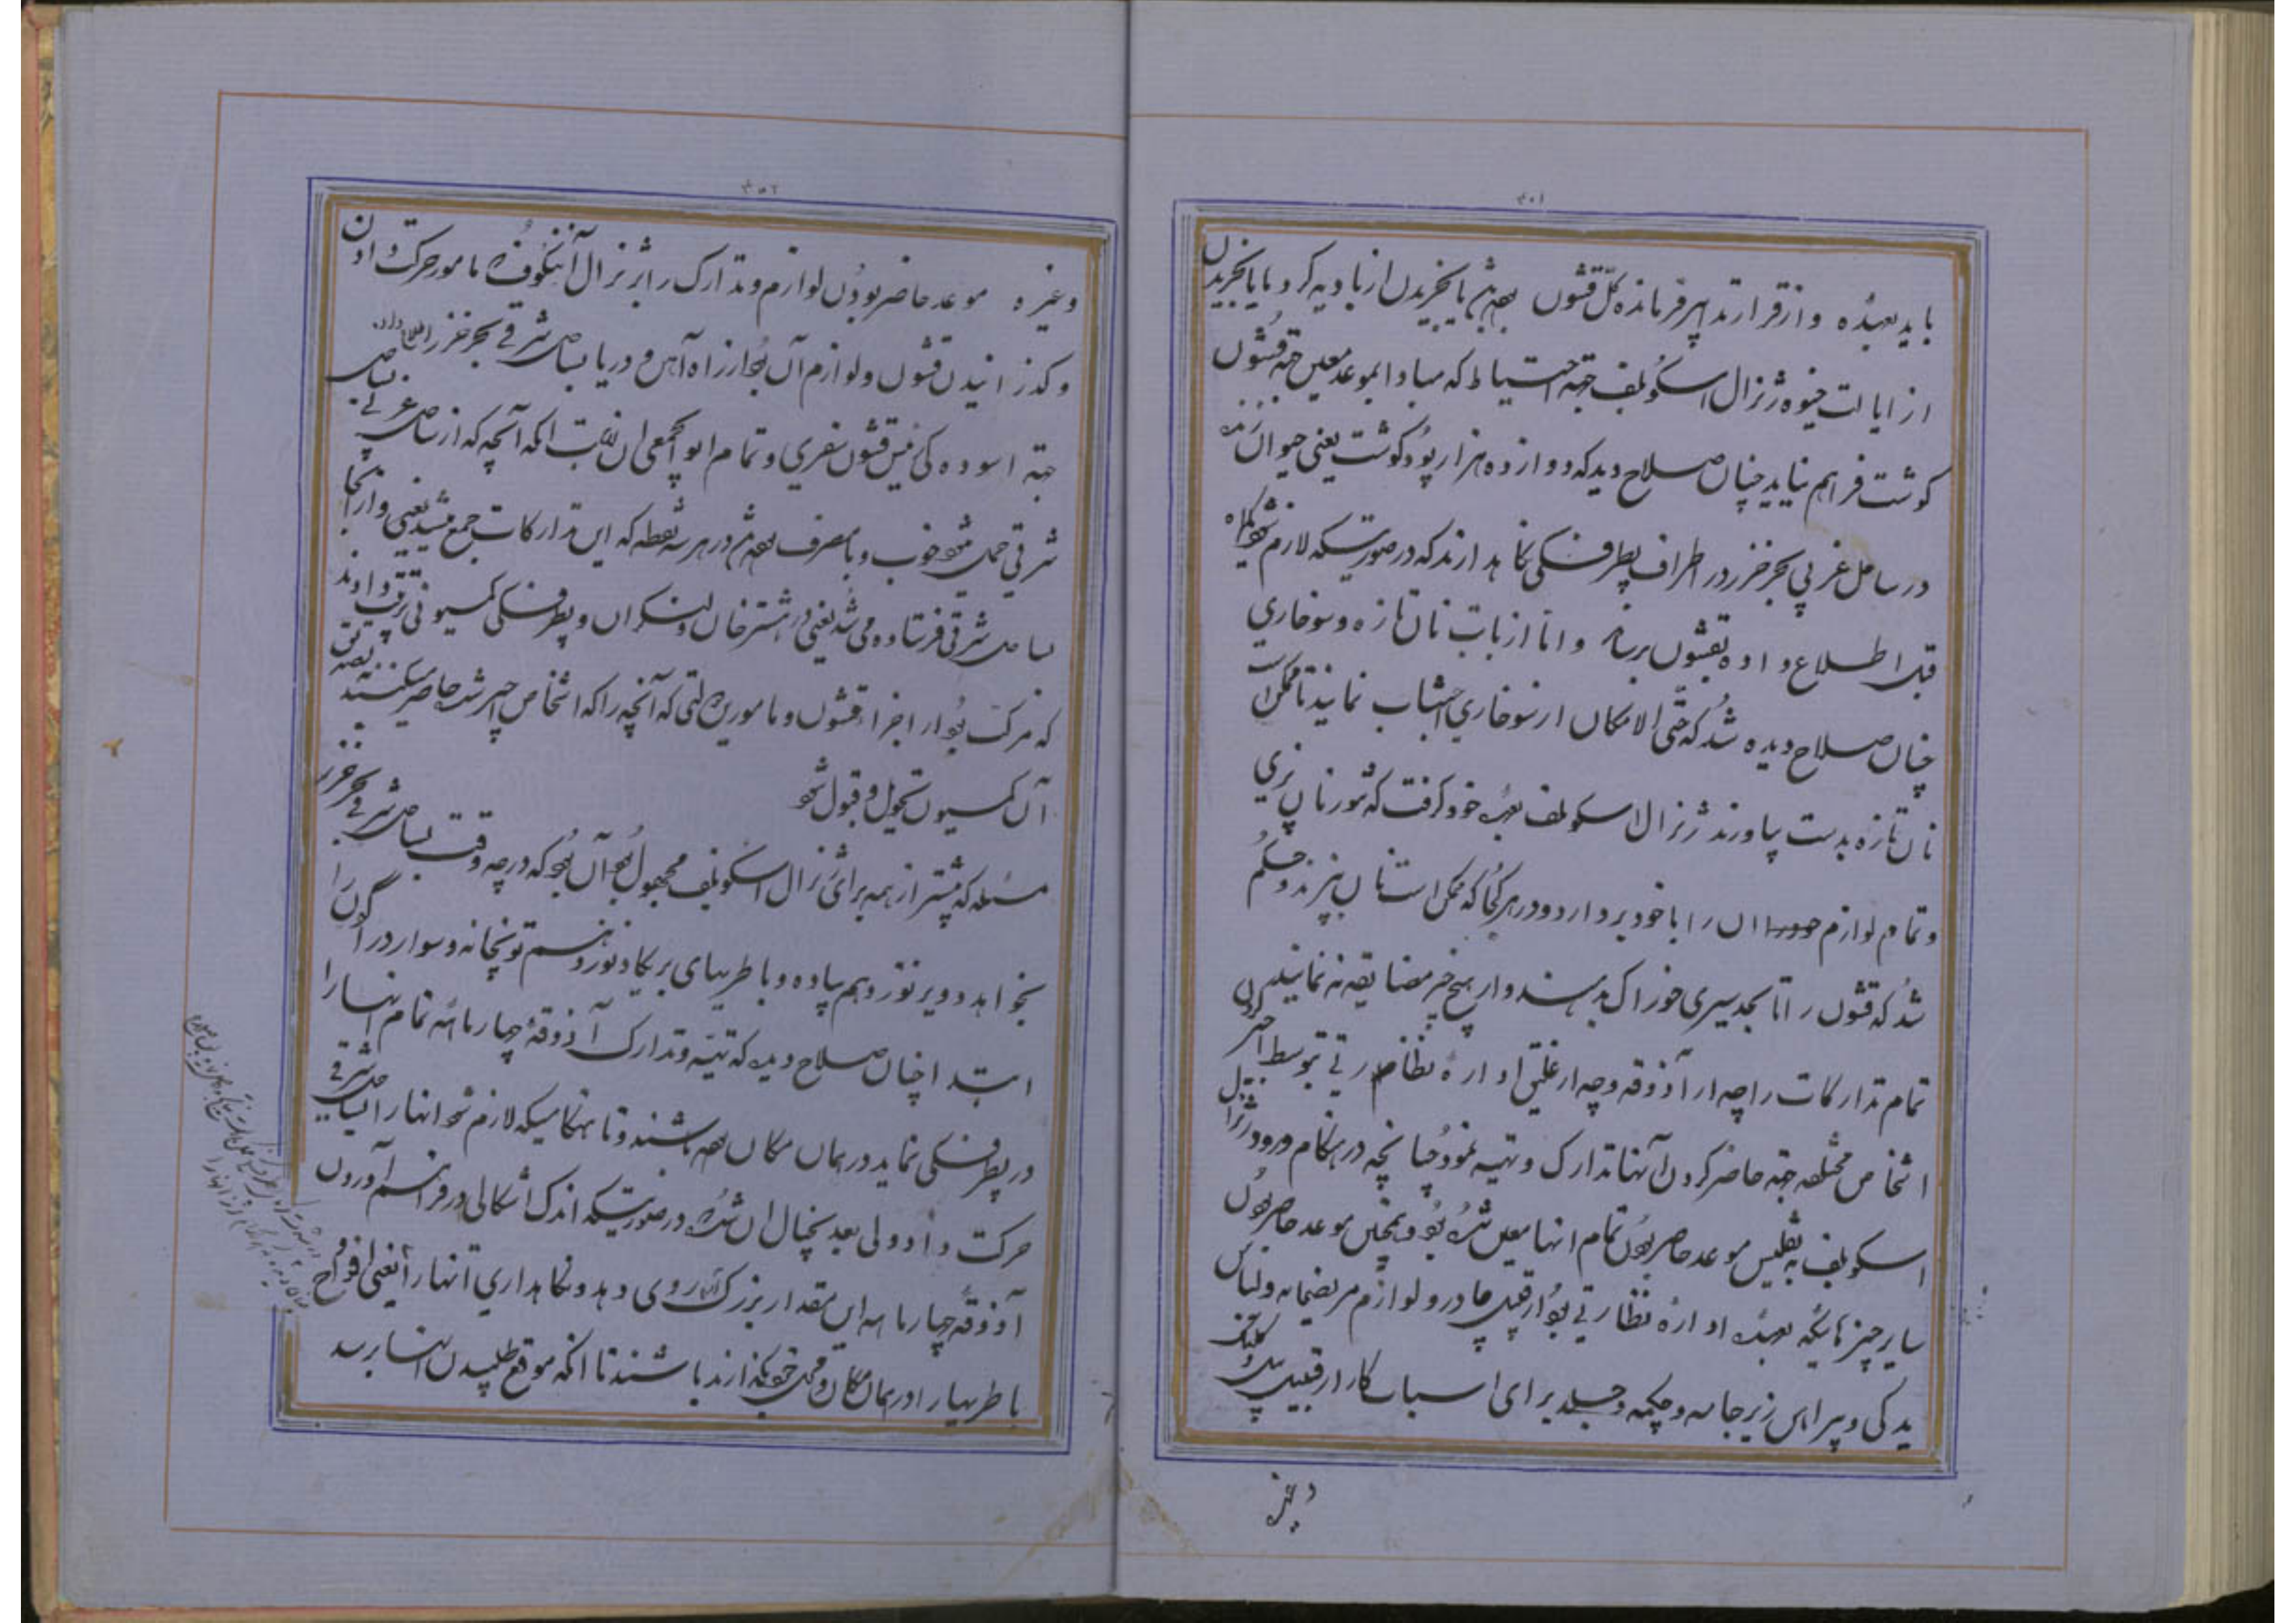 ۳۰۱
باید بعهده و از قرار تدابیر فرمانده کل قشون بوده باشد یا بخریدن از بادیه کرد و یا بخریدن
از ایالت خیوه ژنرال اسکوبلف جهة احتیاط که مبادا بموعد معین جهة قشون
گوشت فراهم نیاید چنان صلاح دید که دوازده هزار پود گوشت یعنی حیوان زنده
در ساحل غربی بحر خزر در اطراف پطرفسکی نگاه دارند که در صورتیکه لازم شود یکماه
قبل اطلاع داده بقشون برسانند و اما از بابت نان تازه و سوخاری
چنان صلاح دیده شد که حتی الامکان از سوخاری اجتناب نمایند تا ممکن است
نان تازه بدست بیاورند ژنرال اسکوبلف بعهده خود گرفت که تنور نان پزی
و تمام لوازم ان را با خود بردارد و در هر کجا که ممکن است نان بپزند و حکم
شد که قشون را تا بحد سیری خوراک بدهند و از هیچ چیز مضایقه نه نمایند
تمام تدارکات را چه از آذوقه و چه از غلیق اداره نظارتی بتوسط اجیر کردن
اشخاص مختلفه جهة حاضر کردن آنها تدارک و تهیه نمود چنانچه در هنگام ورود ژنرال
اسکوبلف به تفلیس موعد حاضر بودن تمام انها معین شده بود و همچنین موعد حاضر بودن
سایر چیزهائیکه بعهده اداره نظارتی بود از قبیل چادر و لوازم مریضخانه و لباس
یدکی و پیراهن زیرجامه و چکمه و جلد برای اسباب کار از قبیل بیل و کلنگ
وغیره
۳۰۲
وغیره موعد حاضر بودن لوازم و تدارک را بر ژنرال آننکوف مامور حرکت دادن
و گذرانیدن قشون و لوازم آن بود از راه آهن و دریا بساحل شرقی بحر خزر اطلاع دادند
جهة اسوده کی رئیس قشون سفری و تمام ابوابجمعی ان بابت انکه آنچه که از ساحل غربی بساحل
شرقی حمل میشود خوب و با مصرف بوده باشد در هر سه نقطه که این تدارکات جمع میشد یعنی و از آنجا
بساحل شرقی فرستاده می شد یعنی در هشترخان و لنکران و پطرفسکی کمسیونی ترتیب دادند
که مرکب بود از اجزاء قشون و مامورین دولتی که آنچه را که اشخاص اجیر شده حاضر میکنند بتصدیق
آن کمسیون تحویل و قبول شود
مسئله که بیشتر از همه برای ژنرال اسکوبلف مجهول بود آن بود که در چه وقت بساحل شرقی بحر خزر
بخواهد دویزنوز دهم پیاده و باطریهای بریکاد نوزدهم توپخانه و سوار دراگون را
ابتدا چنان صلاح دید که تهیه و تدارک آذوقه چهار ماهه تمام انها را
در پطرفسکی نماید در همان مکان بوده باشند و تا هنگامیکه لازم شود انها را بساحل شرقی
حرکت داد ولی بعد بخیال ان شد که در صورتیکه اندک اشکالی در فراهم آوردن
آذوقه چهار ماهه این مقدار بزرگ روی دهد و نگاهداری انها را یعنی افواج
باطریها را در همان مکان و محل خود بگذارند باشند تا انکه موقع طلبیدن انها برسد